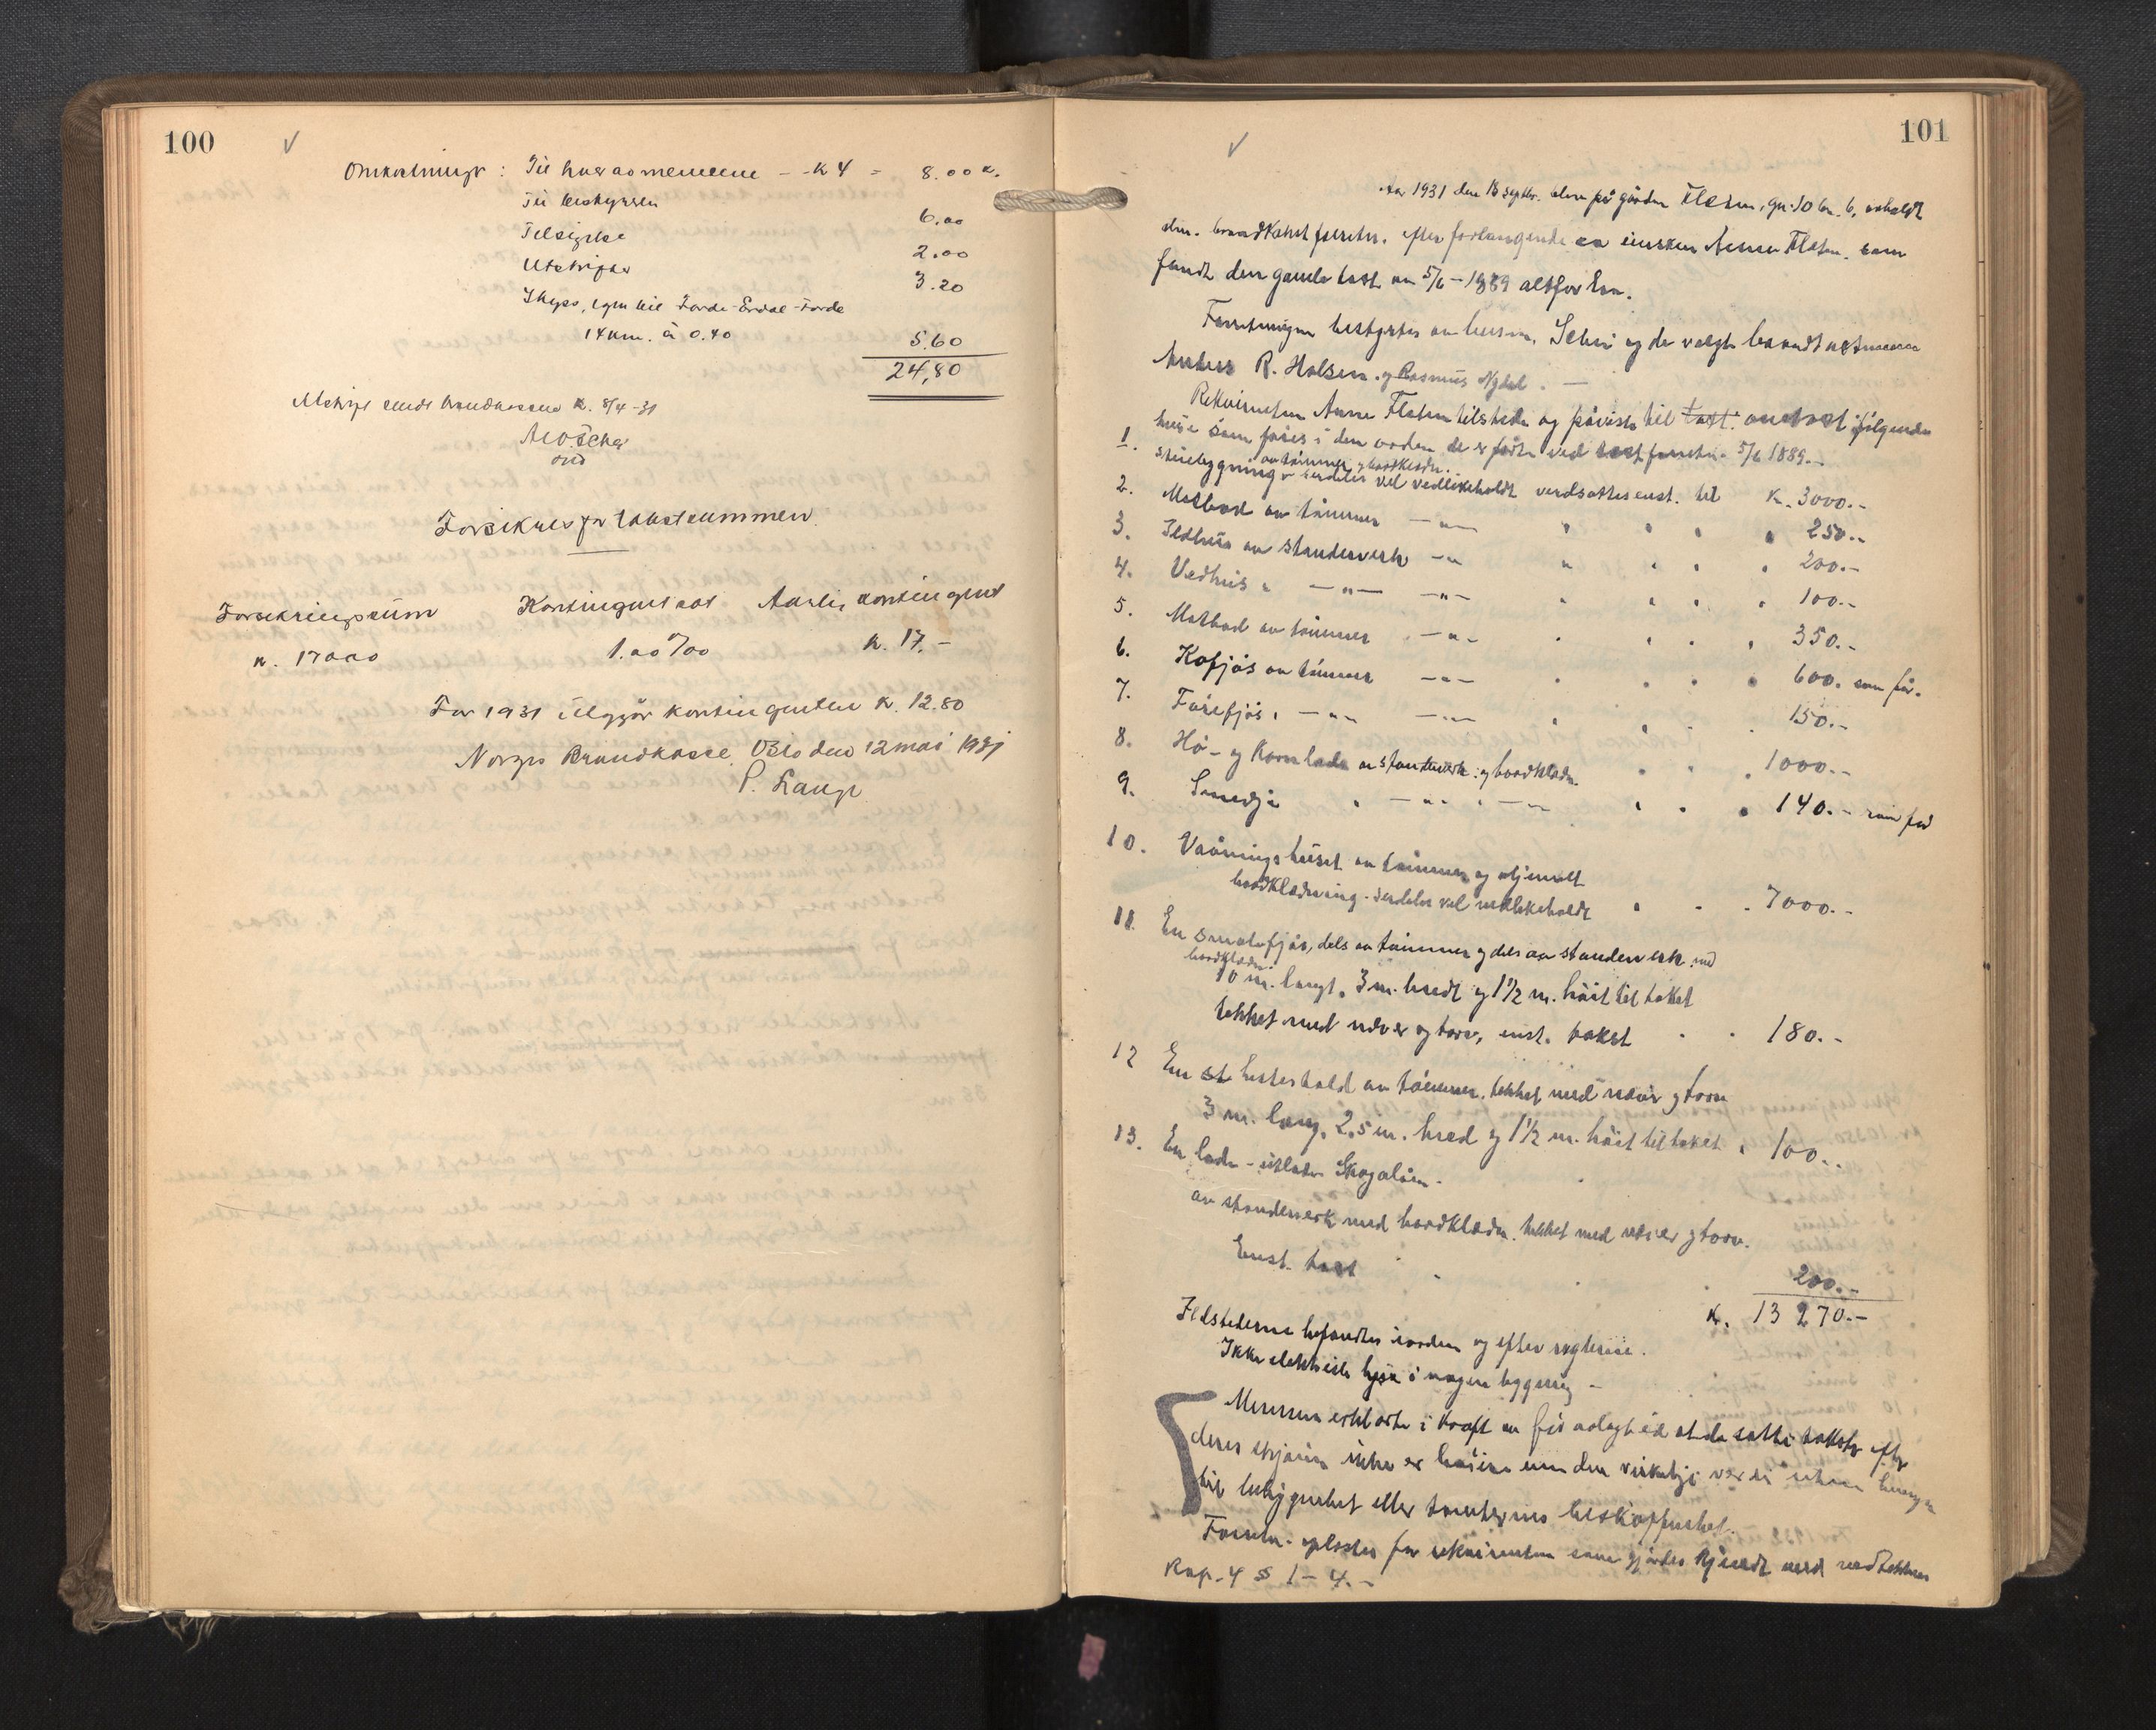 100
Omkostninger: Til hver av mennene - - K 4 = 8.00 K.
Til bestyreren 6.00
Tilsigelse 2.00
Utskrifter 3.20
Skyss, egen bil Førde-Erdal-Førde
14 km. à 0.40 5.60
24,80
Utskrift sendt brandkassen K. 8/4-31
Forsikres for takstsummen.
Forsikringssum Kontingentsats Aarlig kontingent
K. 17000 1.00 ‰ K. 17.-
For 1931 utgjør kontingenten K. 12.80
Norges Brandkasse, Oslo den 12 mai 1931
P. Lange
101
Aar 1931 den 18 septbr. blev på gården Flaten, gn. 10 bn. 6, avholdt
alm. brandtakstforretn. efter forlangende av enken Anna Flaten, som
fandt den gamle takst av 5/6-1889 altfor liten.
Forretningen bestyrtes av lensm. og de valgte brandtakstmænn
Anders R. Halsen og Rasmus Nydal. -
Rekvirenten Anna Flaten tilstede og påviste til takst: omtakst følgende
huse som føres i den orden de er ført ved takstforretn. 5/6 1889.-
1. Stuebygning av tømmer, bordklædn. særdeles vel vedlikeholdt verdsattes enst. til K. 3000.-
2. Matbod av tømmer -"- " " " " 250.-
3. Ildhus av standerverk -"- " " " " 200.-
4. Vedhus " -"- -"- " " " " 100.-
5. Matbod av tømmer -"- " " " " 350.-
6. Kofjøs av tømmer -"- " " " " 600. som før.
7. Fårefjøs " -"- -"- " " " 150.-
8. Hø- og Kornlade av standerverk og bordklædn. " " " 1000.-
9. Smedje " -"- " -"- " " " 140.- som før
10. Vaaningshuset av tømmer og oljemalt
bordklædning. Særdeles vel vedlikeholdt " " " 7000.-
11. En smalefjøs, dels av tømmer og dels av standerverk med
bordklædn.
10 m. langt, 3 m. bredt og 1½ m. høit til taket
tekket med never og torv, enst. takst " " 180.-
12 En st hestestald av tømmer, tekket med never og torv
3 m. lang, 2,5 m. bred og 1½ m. høit til taket " 100.-
13. En lade - utlade
av standerverk med bordklædn. tekket med never og torv.
Enst. takst " " " 200.-
K. 13 270.-
Ildstederne befandtes i orden og efter reglerne.
Ikke elektrisk lys i nogen bygning -
Mennene erklærte i kraft av før avlagt ed at de satte takster efter
deres skjønn ikke er høiere enn den virkelige verdi uten hensyn
til beliggenhet eller tomternes beskaffenhet.
Forretn. oplestes for rekvirenten som gjordes kjendt med vedtekternes
Kap. 4 §§ 1-4.-